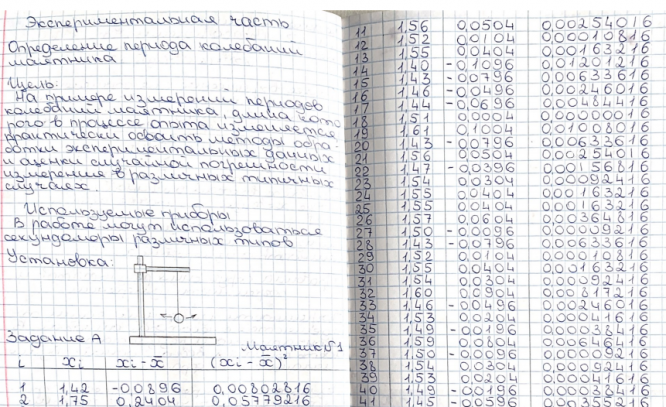 Экспериментальная часть
Определение периода колебаний
маятника
Цель:
На примере измерений периодов
колебаний маятника, длина кото
рого в процессе опыта изменяется
практически освоить методы обра-
ботки экспериментальных данных
и оценки случайной погрешности
измерения в различных типичных
случаях.
Используемые приборы
В работе могут использоваться
секундомеры различных типов
Установка:
Задание А
Маятник №1
i xi xi - x̄ (xi - x̄)²
1 1,42 -0,0896 0,00802816
2 1,75 0,2404 0,05779216
11 1,56 0,0504 0,00254016
12 1,52 0,0104 0,00010816
13 1,55 0,0404 0,00163216
14 1,40 -0,1096 0,01201216
15 1,43 -0,0796 0,00633616
16 1,46 -0,0496 0,00246016
17 1,44 -0,0696 0,00484416
18 1,51 0,0004 0,00000016
19 1,61 0,1004 0,01008016
20 1,43 -0,0796 0,00633616
21 1,56 0,0504 0,00254016
22 1,47 -0,0396 0,00156816
23 1,54 0,0304 0,00092416
24 1,55 0,0404 0,00163216
25 1,55 0,0404 0,00163216
26 1,57 0,0604 0,00364816
27 1,50 -0,0096 0,00009216
28 1,43 -0,0796 0,00633616
29 1,52 0,0104 0,00010816
30 1,55 0,0404 0,00163216
31 1,54 0,0304 0,00092416
32 1,60 0,0904 0,00817216
33 1,46 -0,0496 0,00246016
34 1,53 0,0204 0,00041616
35 1,49 -0,0196 0,00038416
36 1,59 0,0804 0,00646416
37 1,50 -0,0096 0,00009216
38 1,54 0,0304 0,00092416
39 1,53 0,0204 0,00041616
40 1,49 -0,0196 0,00038416
41 1,45 -0,0596 0,00355216